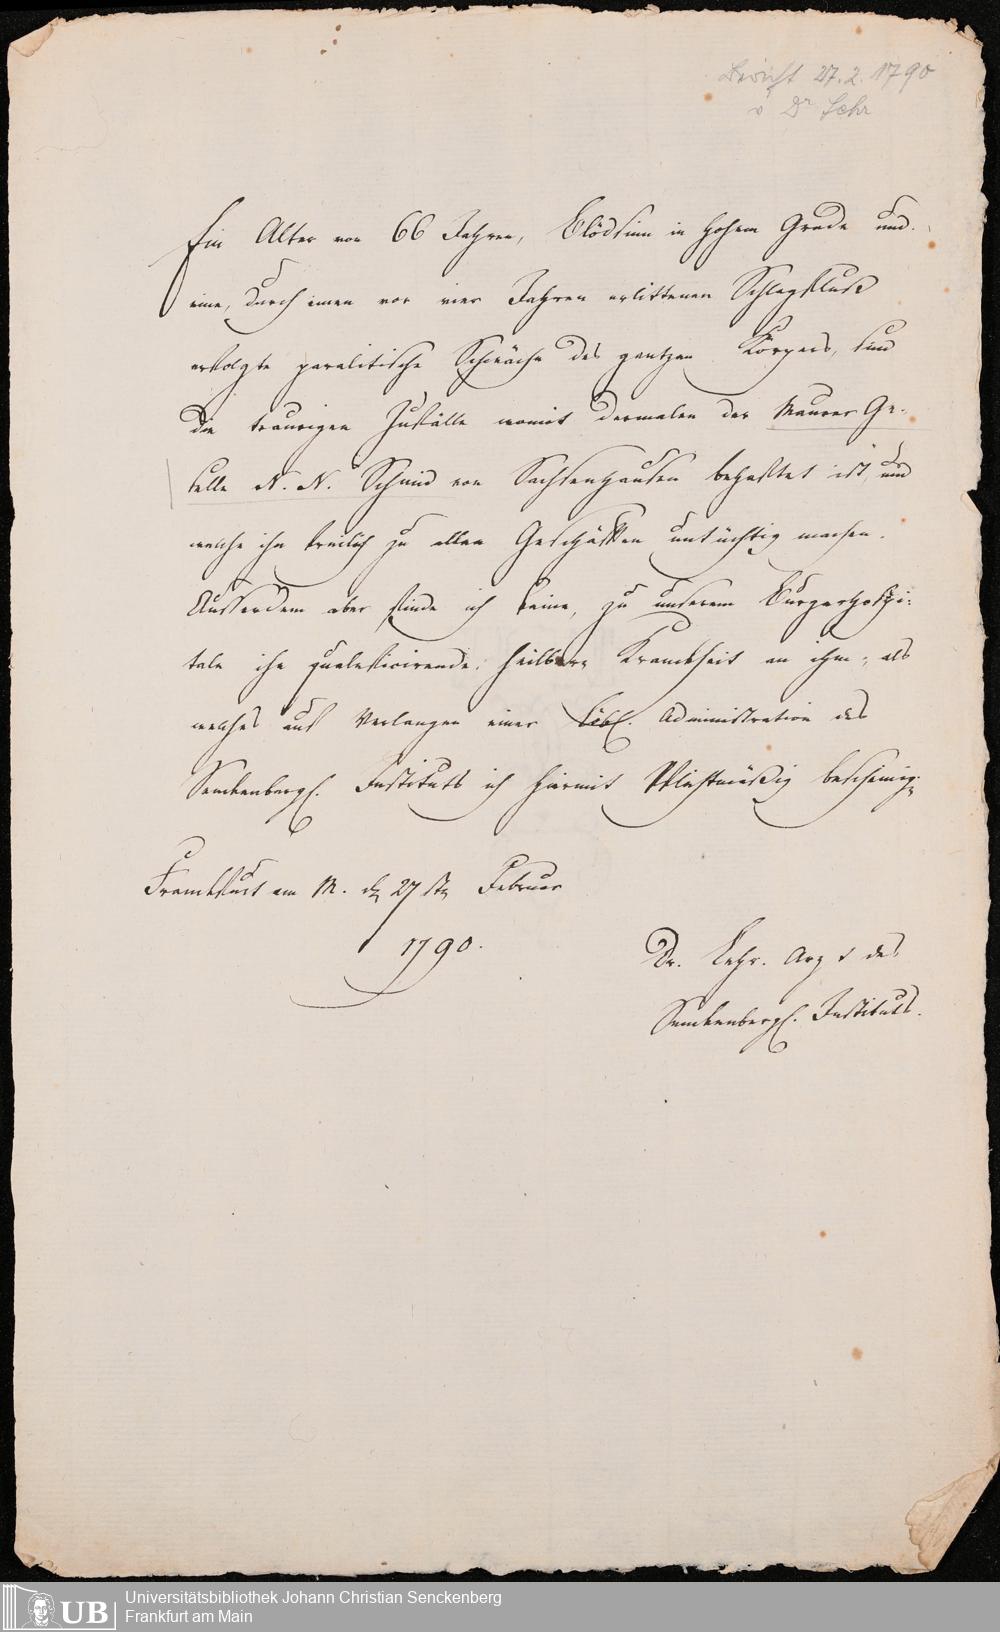 Bericht 27.2.1790
v Dr Lehr
Ein Alter von 66 Jahren, Blödsinn in hohem Grade und
eine, durch einen vor vier Jahren erlittenen Schlagfluß
erfolgte paralitische Schwäche des gantzen Körpers, sind
die traurigen Zufälle womit dermalen der Maurer Ge-
selle N. N. Schmid von Sachsenhausen behaftet ist, und
welche ihn freilich zu allen Geschäften untüchtig machen.
Ausserdem aber finde ich keine, zu unserem Burgerhospi-
tale ihn qualificirende, heilbare Krankheit an ihm; als
welches auf Verlangen einer Löbl. Administration des
Senkenbergl. Instituts ich hiermit Pflichtmäßig bescheinige.
Frankfurt am M. den 27 sten Februar
1790.
Dr. Lehr. Arzt des
Senkenbergl. Instituts.
UB
Universitätsbibliothek Johann Christian Senckenberg
Frankfurt am Main